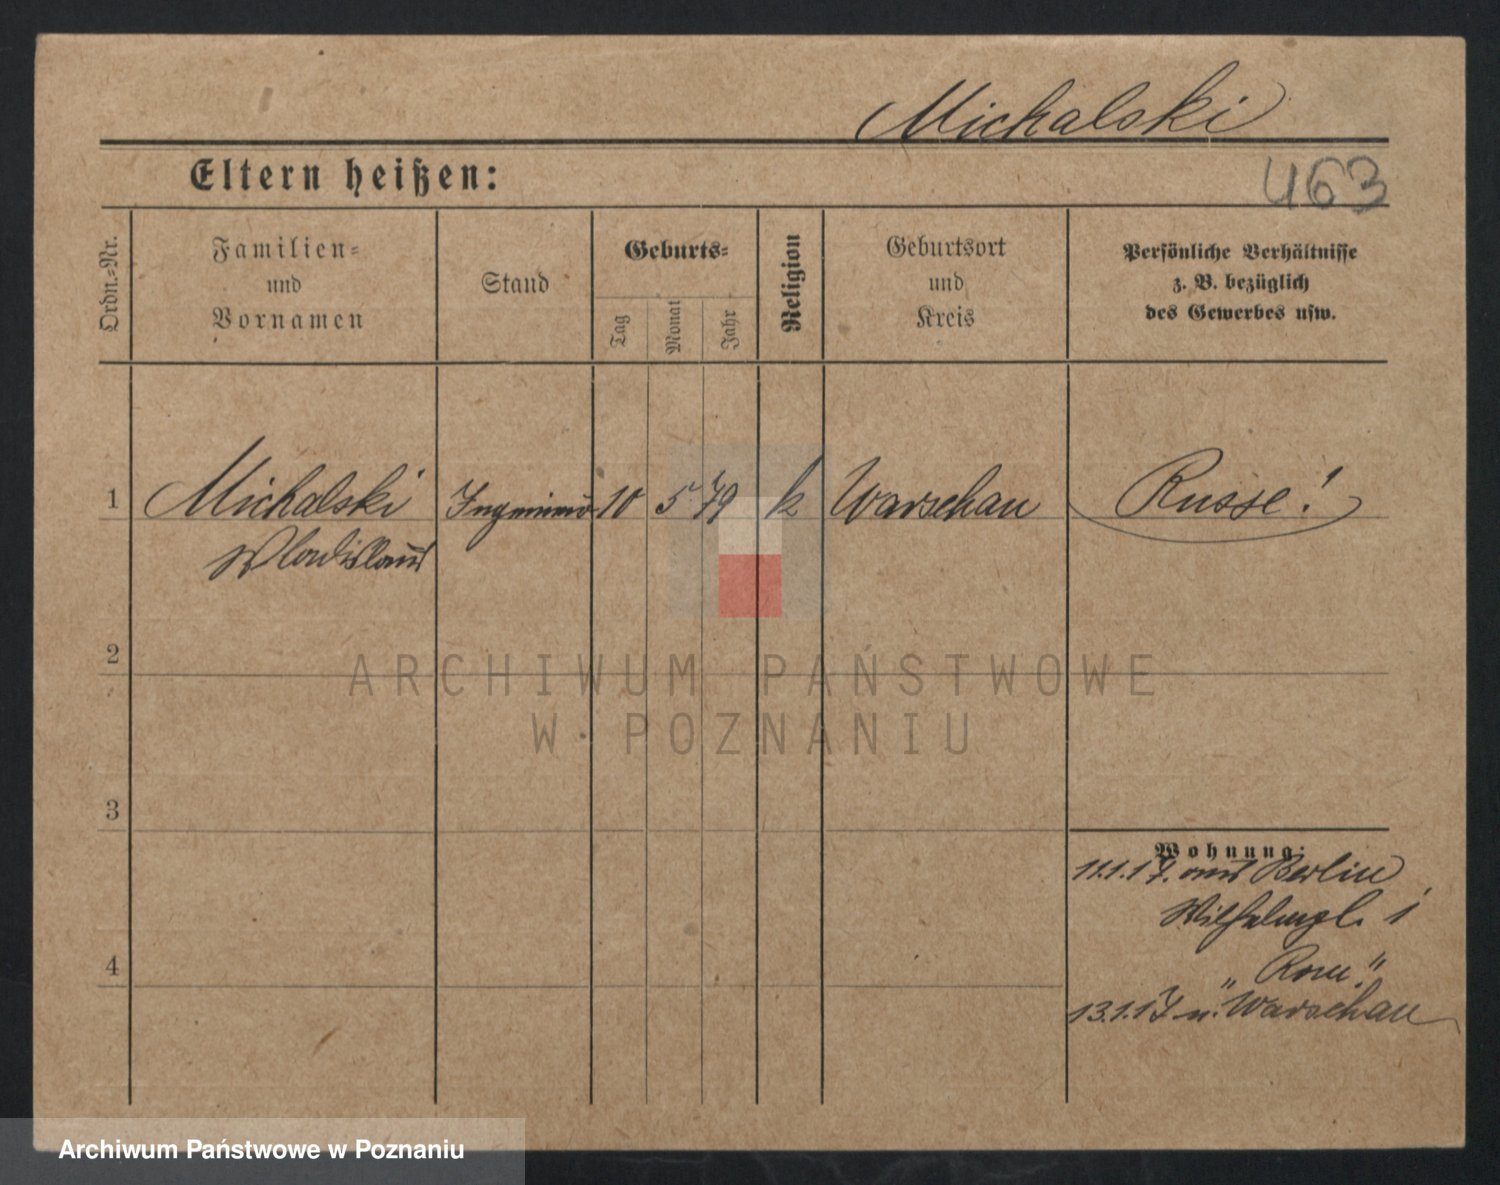 Michalski
Eltern heißen:
463
Ordn.-Nr.
Familien-
und
Vornamen
Stand
Geburts-
Tag
Monat
Jahr
Religion
Geburtsort
und
Kreis
Persönliche Verhältnisse
z. B. bezüglich
des Gewerbes usw.
1
Michalski
Ingenieur
10
5
79
k
Warschau
Russe!
Wladislaus
2
ARCHIWUM PAŃSTWOWE
W POZNANIU
3
Wohnung:
11.1.17. aus Berlin
Wilhelmpl. 1
4
"Rom"
13.1.17 n. Warschau
Archiwum Państwowe w Poznaniu